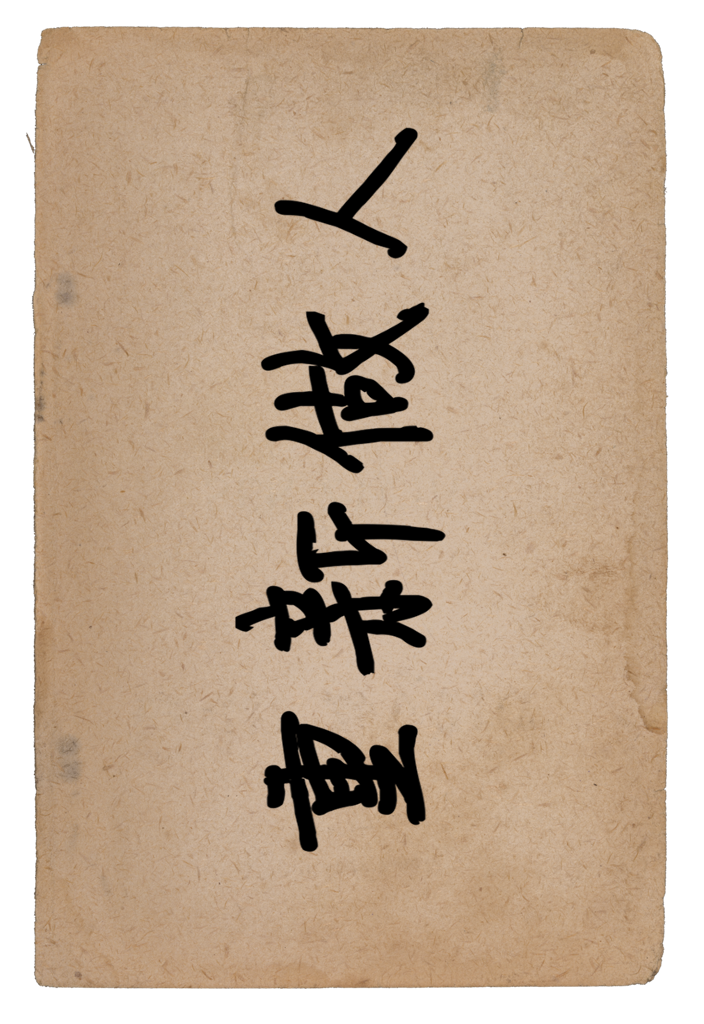 重新做人